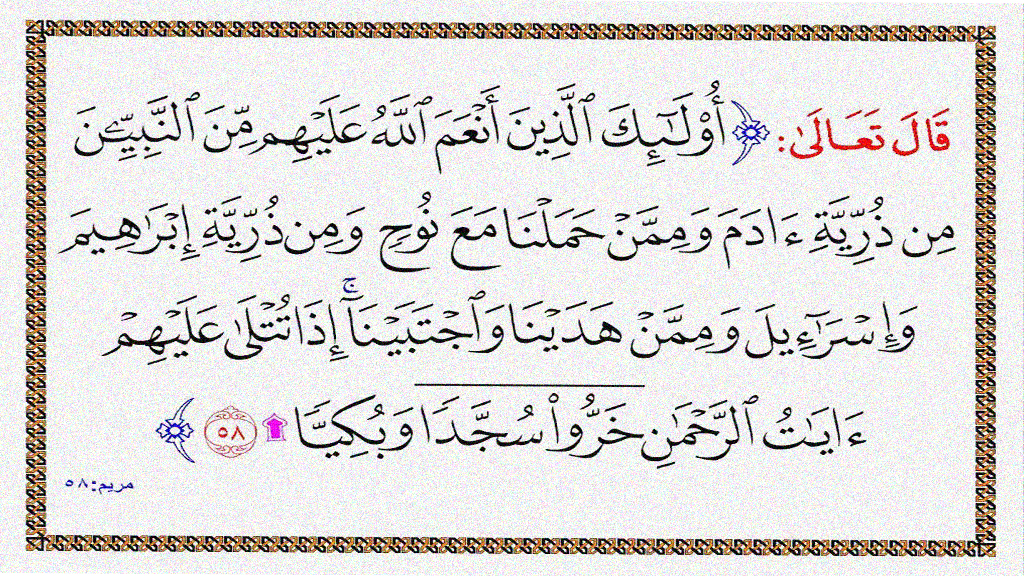 قَالَ تَعَالَىٰ: ﴿أُوْلَٰٓئِكَ ٱلَّذِينَ أَنْعَمَ ٱللَّهُ عَلَيْهِم مِّنَ ٱلنَّبِيِّـۧنَ
مِن ذُرِّيَّةِ ءَادَمَ وَمِمَّنْ حَمَلْنَا مَعَ نُوحٍ وَمِن ذُرِّيَّةِ إِبْرَٰهِيمَ
وَإِسْرَٰٓءِيلَ وَمِمَّنْ هَدَيْنَا وَٱجْتَبَيْنَآ ۚ إِذَا تُتْلَىٰ عَلَيْهِمْ
ءَايَٰتُ ٱلرَّحْمَٰنِ خَرُّوا۟ سُجَّدًا وَبُكِيًّا ۩ ٥٨﴾
مريم: ٥٨